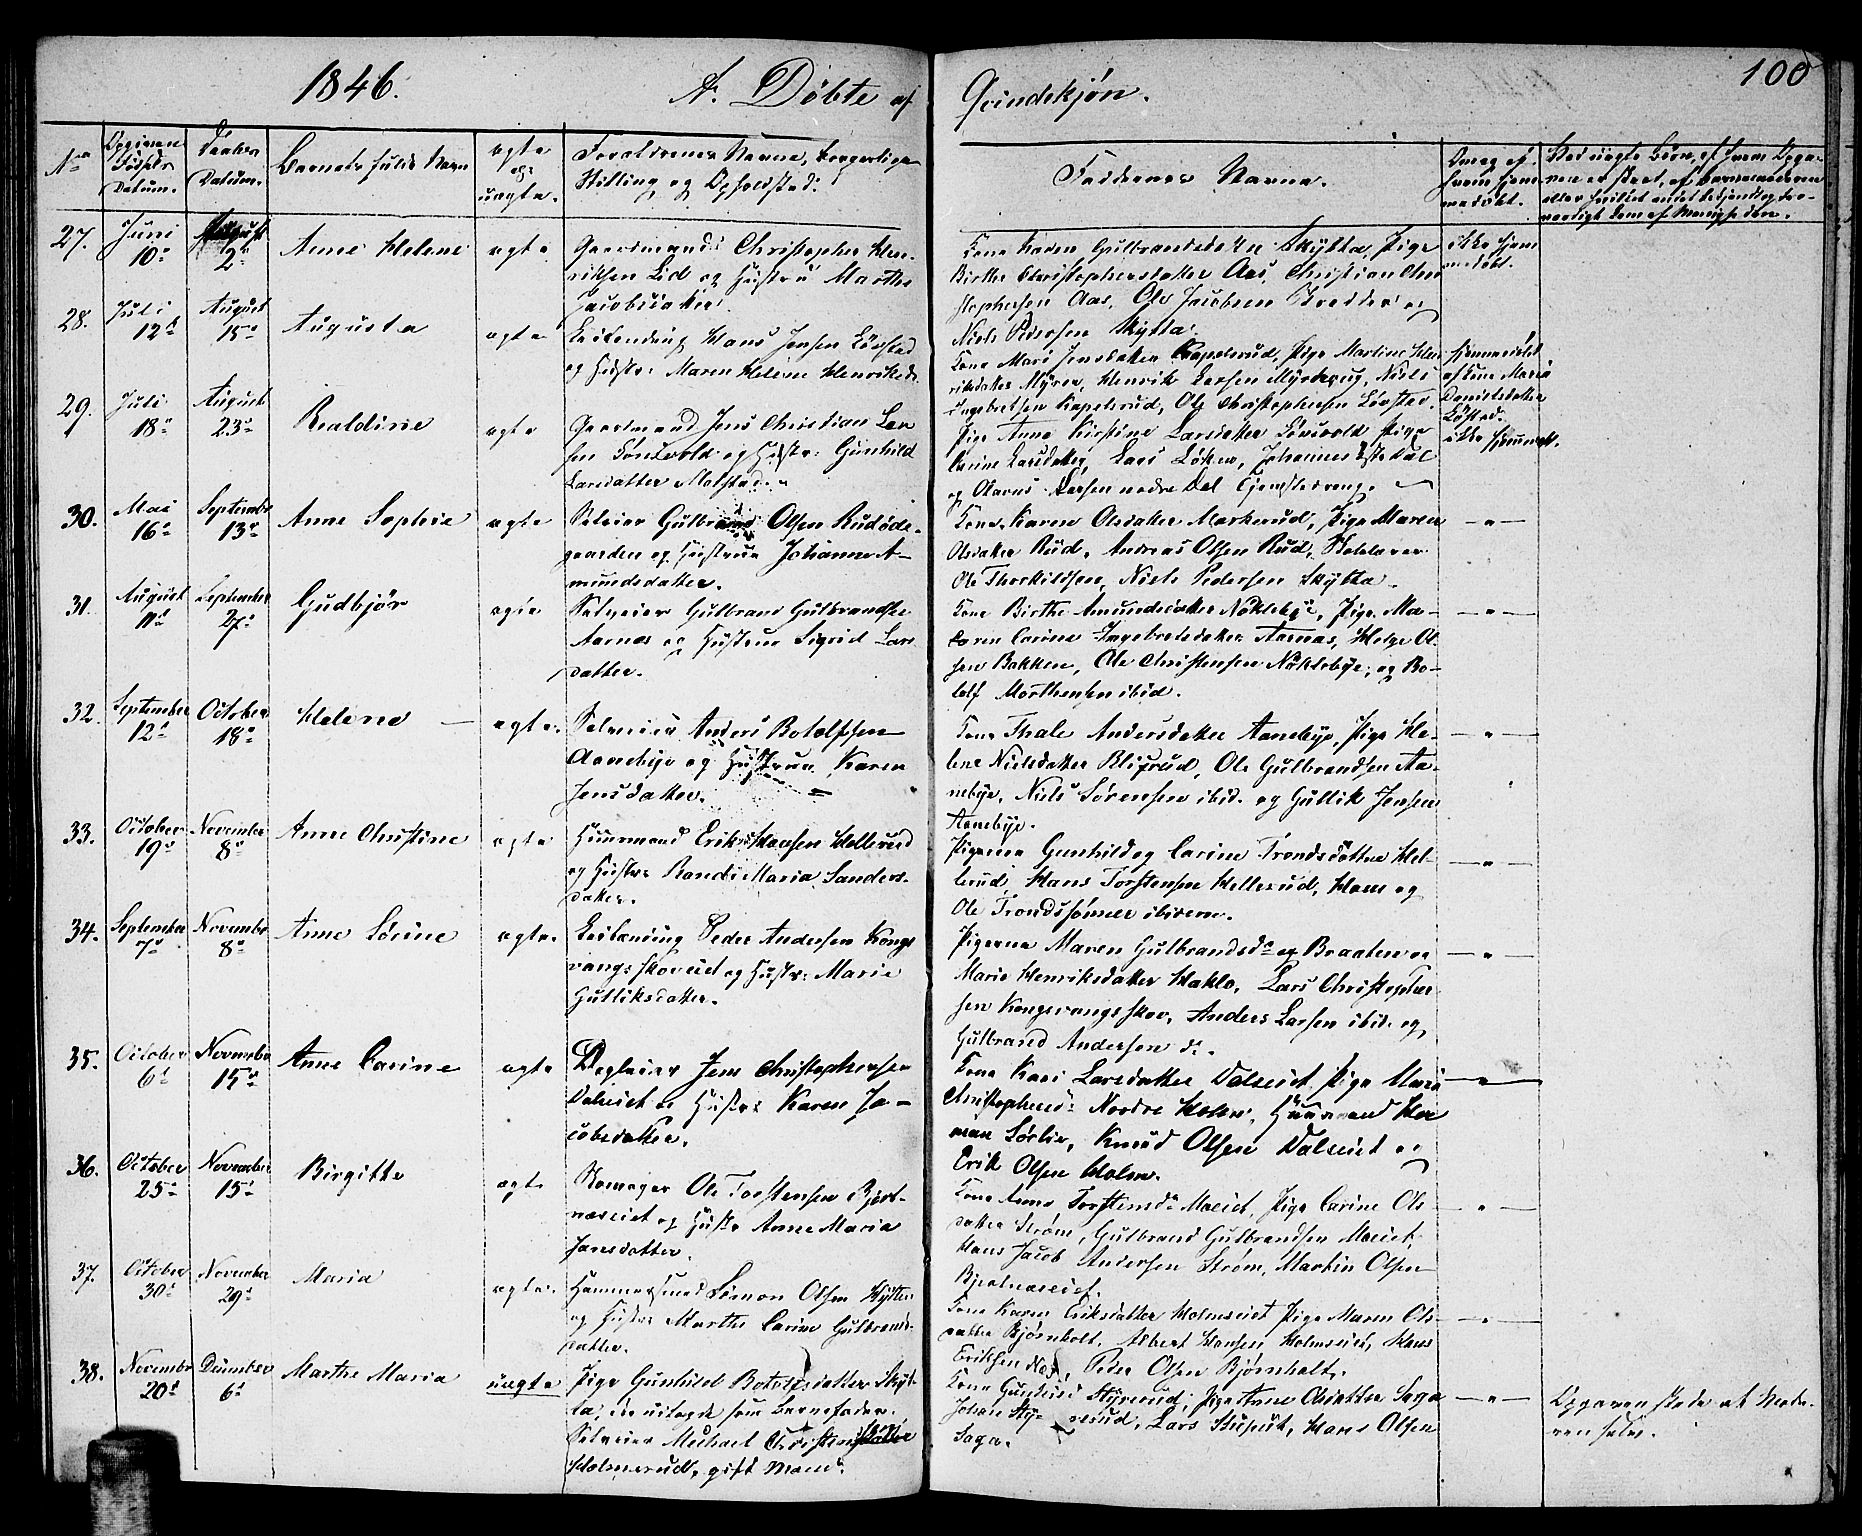 1846. A. Døbte af Qvindekjøn. 100
No
Opgiven Fødsels Datum.
Daabs Datum.
Barnets fulde Navn
ægte og uægte.
Forældrenes Navne, borgerlige
Stilling og Opholdsted.
Faddernes Navne.
27. Juni 10de August 2den Anne Helene ægte
Gaardmand Christopher Hen-
riksen Lid og Hustru Marthe
Jacobsdatter.
Kone Karen Gulbrandsdatter Skytta, Pige
Birthe Christophersdatter Aas, Christian Chri-
stophersen Aas, Ole Jacobsen
Niels Pedersen Skytta.
ikke hjem-
medøbt.
28. Juli 12te August 15de Augusta ægte
Hans Jensen Løvstad
og Hustr: Maren Helene Henriksdr.
Kone Mari Jensdatter Kapelrud, Pige Martine Hen-
riksdatter Myrer, Henrik Larsen Myrhaug, Niels
Ingebretsen Kapelsrud, Ole Christophersen Løvstad.
Hjemmedøbt
af Kone Maria
Danielsdatter
Løvstad.
29. Juli 18de August 23de Realdine ægte
Gaardmand Jens Christian Lar-
sen Sønsvold og Hustr: Gunhild
Larsdatter Molstad.
Pige Anne Kirstine Larsdatter Sønsvold, Pige
Carine Larsdatter, Lars Løken, Johannes Østre Dal
og Olavus Larsen nedre Dal
ikke hjemmedt.
30. Mai 16de September 13de Anne Sophie ægte
Selveier Gulbrand Olsen Rudøde-
gaarden og Hustrue Johanne A-
mundsdatter.
Kone Karen Olsdatter Markerud, Pige Maren
Olsdatter Rud, Andreas Olsen Rud,
Ole Thorkildsen, Niels Pedersen Skytta.
— " —
31. August 11te September 27de Gudbjør ægte
Selveier Gulbrand Gulbrandsen
Aarnæs og Hustrue Sigrid Lars-
datter.
Kone Birthe Amundsdatter Nøklebye, Pige Ma-
ren Carine Ingebretsdatter Aarnæs, Helge Ol-
sen Bakken, Ole Christensen Nøklebye, og Bo-
tolf Morthensen ibid.
— " —
32. September 12te October 18de Helene ægte.
Selveier Anders Botolphsen
Aanebye og Hustrue Karen
Jensdatter.
Kone Thale Andersdatter Aanebye, Pige He-
lene Nielsdatter Blixrud, Ole Gulbrandsen Aa-
nebye, Niels Sørensen ibid. og Gullik Jensen
Aanebye.
— " —
33. October 19de November 8de Anne Christine ægte
Huusmand Erik Hansen Hellerud
og Hustr: Randi Maria Sanders-
datter.
Pigerne Gunhild og Carine Trondsdøttre Hel-
lerud, Hans Torstensen Hellerud, Hans og
Ole Trondssønner ibidem.
— " —
34. September 7de November 8de Anne Sørine ægte.
Peder Andersen Kongs-
vangsskovud og Hustr: Marie
Gulliksdatter.
Pigerne Maren Gulbrandsdr Braaten og
Marie Henriksdatter Haklo, Lars Christopher-
sen Kongsvangsskov, Anders Larsen ibid. og
Gulbrand Andersen do.
— " —
35. October 6te November 15de Anne Carine ægte
Pogleier Jens Christophersen
Dalseiet og Hustr: Karen Ja-
cobsdatter.
Kone Kari Larsdatter Dalseiet, Pige Mari
Christophersdr Nordre Holm, Huusmand Her-
man Sørlie, Knud Olsen Dalseiet og
Erik Olsen Holm.
— " —
36. October 25de November 15de Birgitte ægte
Skomager Ole Torstensen Bjert-
næseiet og Hustr Anne Maria
Jansdatter.
Kone Anne Torstensdr Moeiet, Pige Carine Ols-
datter Strøm, Gulbrand Gulbrandsen Moeiet,
Hans Jacob Andersen Strøm, Martin Olsen
Bjertnæseiet.
— " —
37. October 30te November 29de Maria ægte.
Hammersmed Simon Olsen Hytten
og Hustr: Marthe Carine Gulbrands-
datter.
Kone Karen Eriksdatter Holmseiet, Pige Maren Ols-
datter Bjørnholt, Albert Hansen Holmseiet, Hans
Eriksen do, Peder Olsen Bjørnholt.
— " —
38. November 20de December 6te Marthe Maria uægte
Pige Gunhild Botolfsdatter Skyt-
ta, der udlagde som Barnefader.
Selveier Michael Christensen
Holmerud, gift Mand.
Kone Gunhild Styrerud, Pige Anne Olsdatter Saga
Johan Sty-rerud, Lars Stupuet, Hans Olsen
Saga.
— " —
Opgaven skede af Mode-
ren selv.